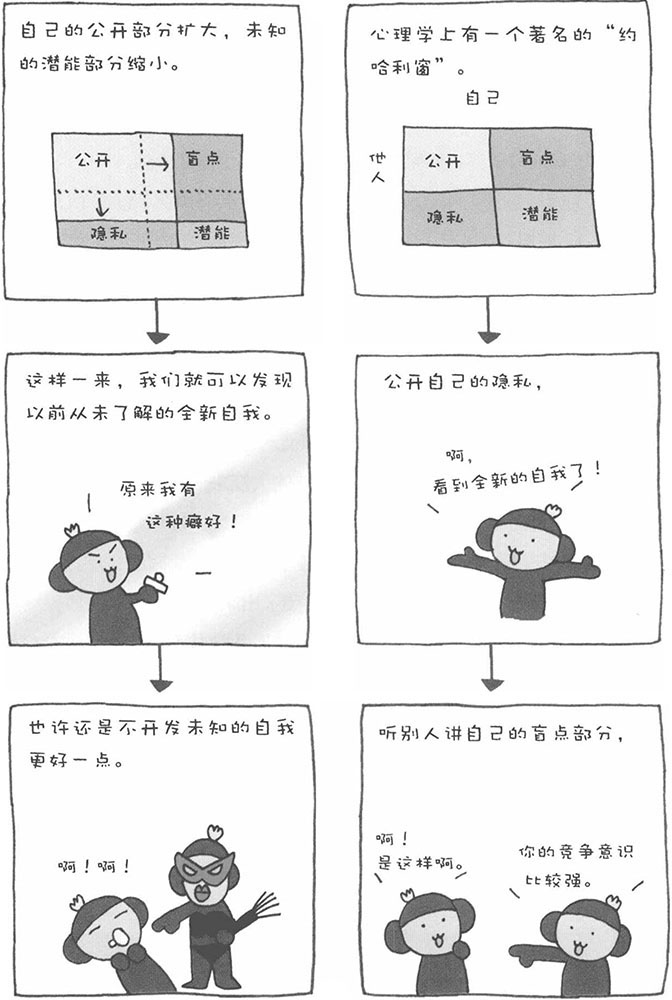 心理学上有一个著名的“约
哈利窗”。
自己
他
人
公开
盲点
隐私
潜能
公开自己的隐私，
啊，
看到全新的自我了！
听别人讲自己的盲点部分，
啊！
是这样啊。
你的竞争意识
比较强。
自己的公开部分扩大，未知
的潜能部分缩小。
公开
盲点
隐私
潜能
这样一来，我们就可以发现
以前从未了解的全新自我。
原来我有
这种癖好！
也许还是不开发未知的自我
更好一点。
啊！啊！